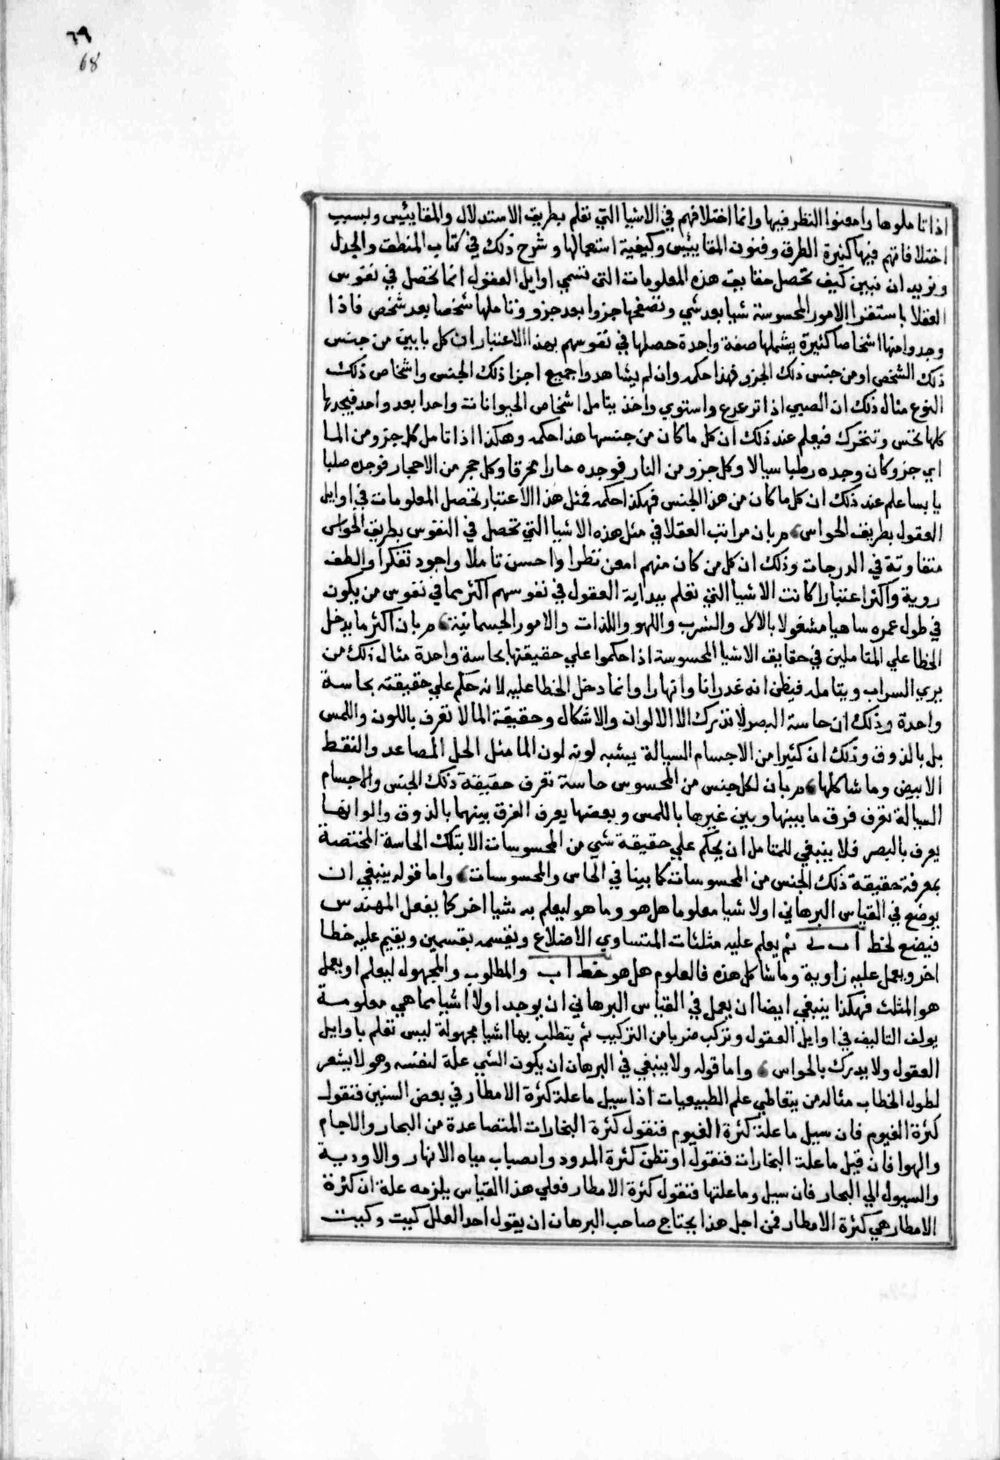 ٦٩
68
اذا تاملوها وامعنوا النظر فيها وانما اختلافهم في الاشيا التي تعلم بطريق الاستدلال والمقاييس وبسبب
اختلافاتهم فيها كثيرة الطرق وفنون المقاييس وكيفية استعمالها وشرح ذلك في كتاب المنطق والجدل
ونريد ان نبين كيف تحصل حقايق هذه المعلومات التي تسمي اوايل العقول انما تحصل في نفوس
العقلا باستقرا الامور المحسوسة شيا بعد شي وتصفحها جزوا بعد جزو وتاملها شخصا بعد شخص فاذا
وجدوا منها اشخاصا كثيرة يشملها صفة واحدة حصلها في نفوسهم بهذا الاعتبار ان كل ما يبين من جنس
ذلك الشخص او من جنس ذلك الجزو فهذا حكمه وان لم يشاهدوا جميع اجزا ذلك الجنس واشخاص ذلك
النوع مثال ذلك ان الصبي اذا ترعرع واستوي واخذ يتامل اشخاص الحيوانات واحدا بعد واحد فيجدها
كلها تحس وتتحرك فيعلم عند ذلك ان كل ما كان من جنسها هذا حكمه وهكذا اذا تامل كل جزو من الما
اي جزو كان وجده رطبا سيالا وكل جزو من النار فوجده حارا محرقا وكل حجر من الاحجار فوجده صلبا
يابسا علم عند ذلك ان كل ما كان من هذا الجنس فهكذا حكمه فمثل هذا الاعتبار تحصل المعلومات في اوايل
العقول بطريق الحواس مر بان مراتب العقلا في مثل هذه الاشيا التي تحصل في النفوس بطريق الحواس
متفاوتة في الدرجات وذلك ان كل من كان منهم امعن نظرا واحسن تاملا واجود تفكرا والطف
روية واكثر اعتبارا كانت الاشيا التي تعلم ببداية العقول في نفوسهم اكثر مما في نفوس من يكون
في طول عمره ساهيا مشغولا بالاكل والشرب واللهو واللذات والامور الجسمانية مر بان اكثر ما يدخل
الخطا علي المتاملين في حقايق الاشيا المحسوسة اذا حكموا علي حقيقتها بحاسة واحدة مثال ذلك من
يري السراب ويتامله فيظن انه غدرانا وانهارا وانما دخل الخطا عليه لانه حكم علي حقيقته بحاسة
واحدة وذلك ان حاسة البصر لا تدرك الا الالوان والاشكال وحقيقة الما لا تعرف باللون واللمس
بل بالذوق وذلك ان كثيرا من الاجسام السيالة يشبه لونه لون الما مثل الخل المصاعد والنفط
الابيض وما شاكلها مر بان لكل جنس من المحسوس حاسة تعرف حقيقة ذلك الجنس والاجسام
السيالة تعرف فرق ما بينها وبين غيرها باللمس وبعضها يعرف الفرق بينهما بالذوق والوانها
يعرف بالبصر فلا ينبغي للمتامل ان يحكم علي حقيقة شي من المحسوسات الا بتلك الحاسة المختصة
بمعرفة حقيقة ذلك الجنس من المحسوسات كما بينا في الحاس والمحسوسات واما قوله ينبغي ان
يوضع في القياس البرهاني اولا شيا معلوما هل هو وما هو ليعلم به شيا اخر كما يفعل المهندس
فيضع لخط اب ثم يعلم عليه مثلثات المتساوي الاضلاع ويقسمه بقسمين ويقيم عليه خطا
اخر ويعمل عليه زاوية وما شاكل هذه فالعلوم هل هو خط اب والمطلوب والمجهول ليعلم او يعمل
هو المثلث فهكذا ينبغي ايضا ان يعمل في القياس البرهاني ان يوجد اولا اشيا مما هي معلومة
يولف التاليف في اوايل العقول وتركب ضربا من التركيب ثم يتطلب بها اشيا مجهولة ليس تعلم باوايل
العقول ولا يدرك بالحواس واما قوله ولا ينبغي في البرهان ان يكون الشي علة لنفسه وهو لا يشعر
لطول الخطاب مثاله من يتعاطي علم الطبيعيات اذا سيل ما علة كثرة الامطار في بعض السنين فتقول
كثرة الغيوم فان سيل ما علة كثرة الغيوم فنقول كثرة البخارات المتصاعدة من البحار والاجام
والهوا فان قيل ما علة البخارات فنقول او تظن كثرة المدود وانصباب مياه الانهار والاودية
والسيول الي البحار فان سيل وما علتها فنقول كثرة الامطار فعلي هذا القياس يلزمه علة ان كثرة
الامطار هي كثرة الامطار فمن اجل هذا يحتاج صاحب البرهان ان يقول احد العلل كيت وكيت